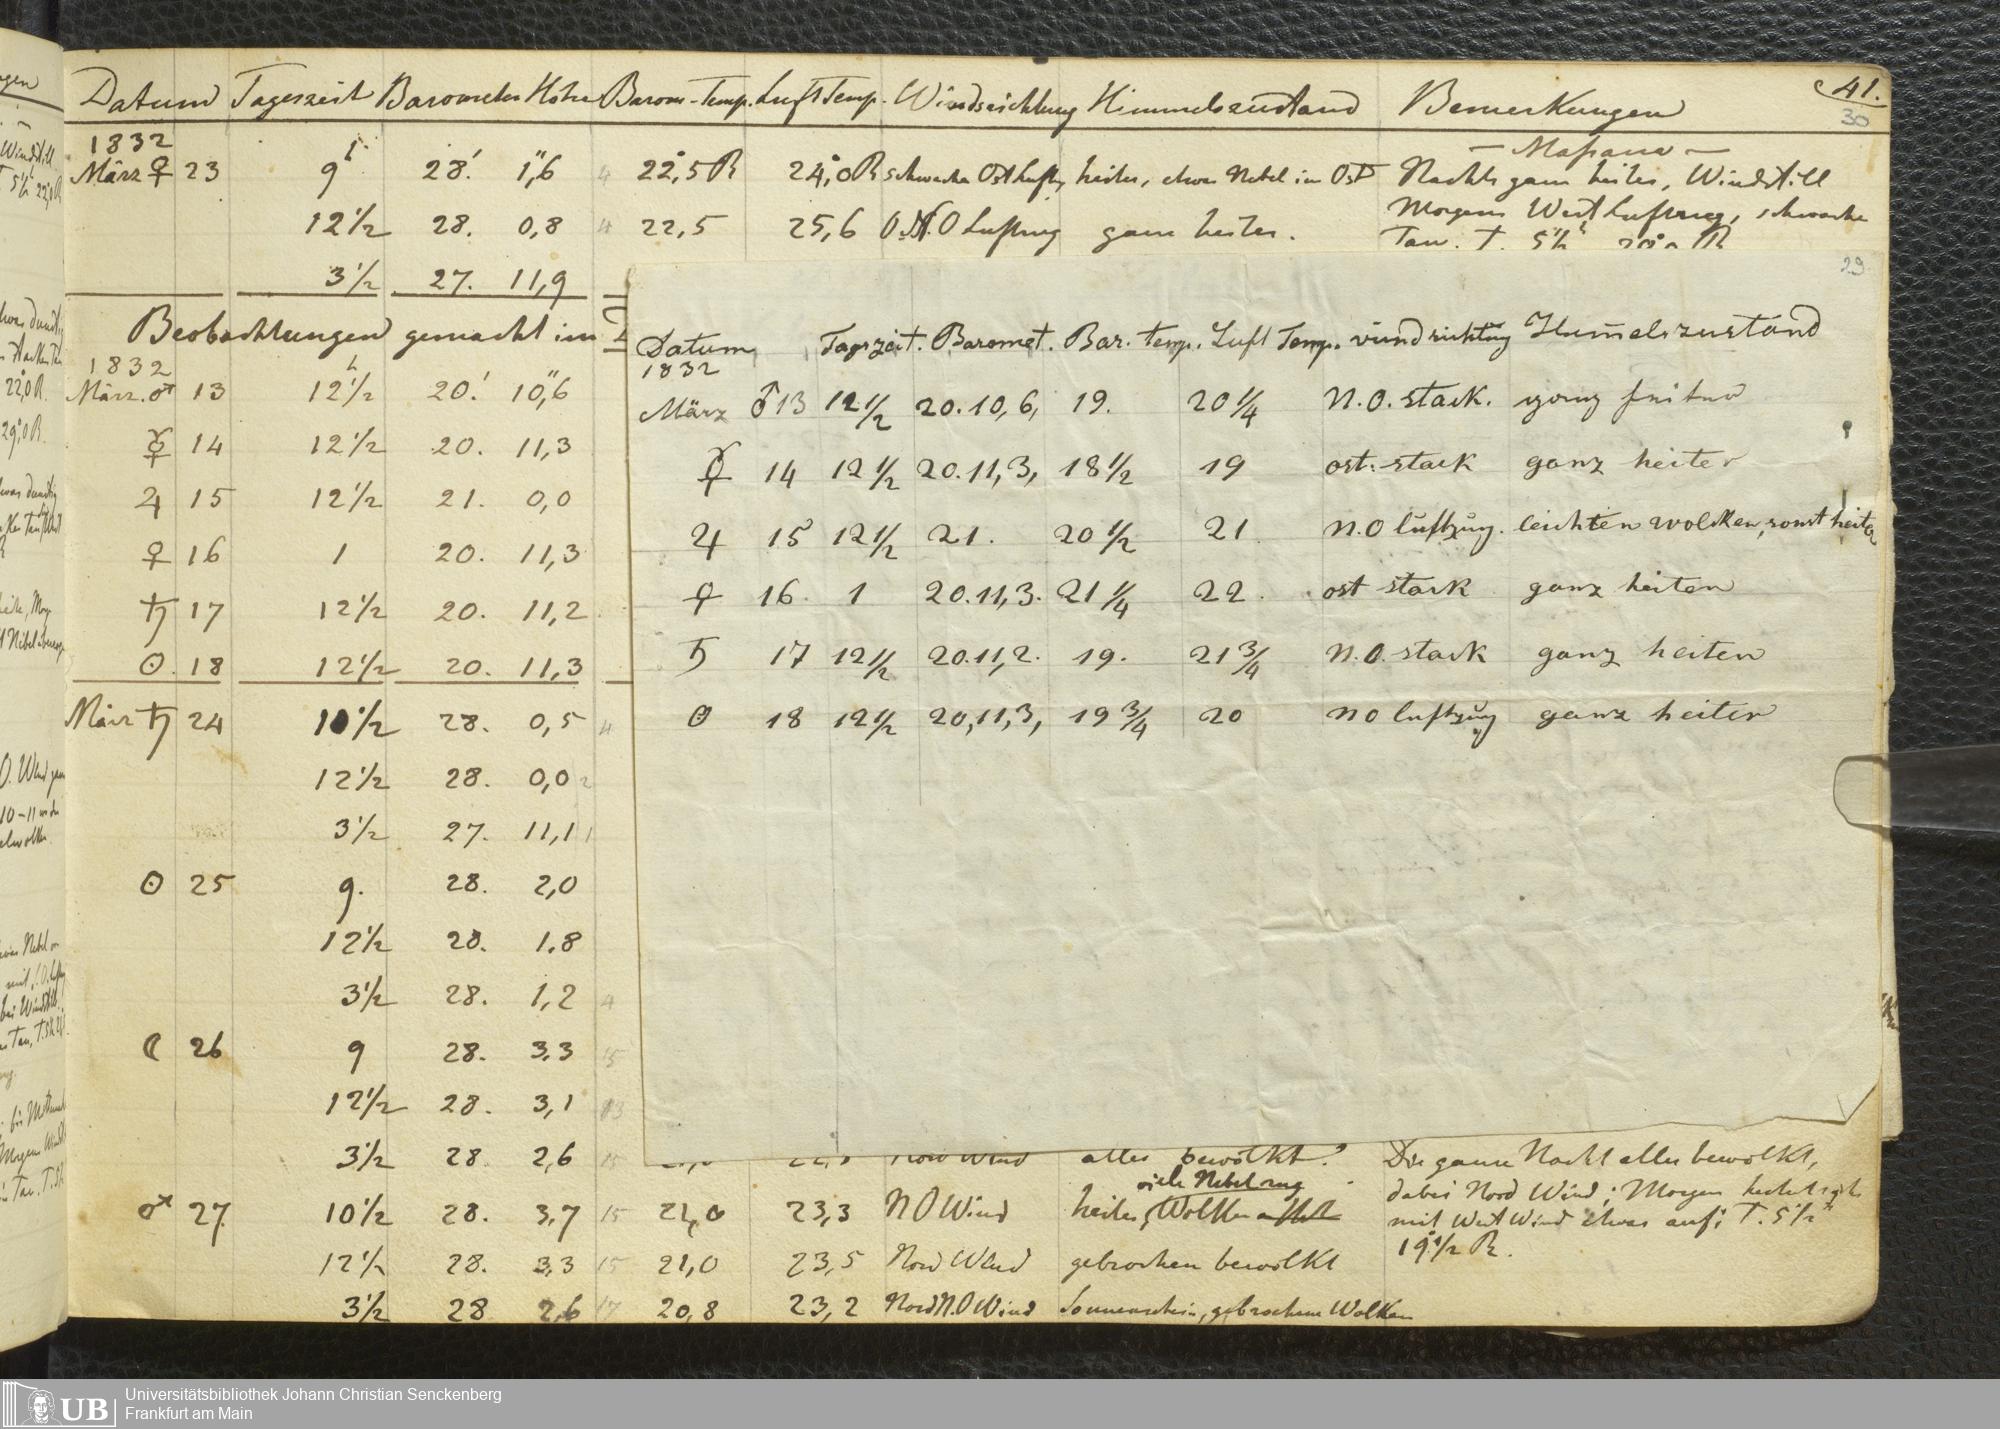 Datum Tageszeit Barometer Höhe Barom-Temp. Luft Temp. Windrichtung Himmelszustand Bemerkungen 41.
30
1832 — Massaua —
März ♀ 23 9h 28.' 1,"6 4 22,°5 R 24,°0 R schwacher Ost Luftzug heiter, etwas Nebel im Ost Nachts ganz heiter, Windstill
Morgens West Luftzug, schwacher
12½ 28. 0,8 4 22,5 25,6 O.N.O Luftzug ganz heiter. Tau. T. 5½h R
3½ 27. 11,9
29
Beobachtungen gemacht im
1832
März. ♂ 13 12½h 20.' 10,"6
☿ 14 12½ 20. 11,3
♃ 15 12½ 21. 0,0
♀ 16 1 20. 11,3
♄ 17 12½ 20. 11,2
☉. 18 12½ 20. 11,3
März ♄ 24 10½ 28. 0,5 4
12½ 28. 0,0 2
3½ 27. 11,1 1
☉ 25 9. 28. 2,0
12½ 28. 1.8
3½ 28. 1,2 4
☾ 26 9 28. 3,3 15
12½ 28. 3,1 13
3½ 28. 2,6 15
Datum Tagszeit. Baromet. Bar. temp. Luft Temp. vindrichtüg Himelszustand
1832
März ♂ 13 12½ 20.10,6, 19. 20¼ N.O. stark. ganz heiter
☿ 14 12½ 20.11,3, 18½ 19 ost. stark ganz heiter
♃ 15 12½ 21. 20½ 21 N.O lüftzüg. leichten wolcken, sonst heiter
♀ 16. 1 20.11,3. 21¼ 22. ost stark ganz heiten
♄ 17 12½ 20.11,2. 19. 21¾ N.O. stark ganz heiten
☉ 18 12½ 20,11,3, 19¾ 20 NO luftzüg ganz heiter
Nord Wind alles bewölkt. Die ganze Nacht alles bewölkt,
viele Nebel zug dabei Nord Wind; Morgen
♂ 27. 10½ 28. 3,7 15 21,0 23,3 NO Wind heiter, Wolken mit West Wind etwas auf; T. 5½h
19°½ R.
12½ 28. 3,3 15 21,0 23,5 Nord Wind gebrochen bewölkt
3½ 28 2,6 17 20,8 23,2 Nord N.O Wind Sonnenschein, gebrochene Wolken
UB
Universitätsbibliothek Johann Christian Senckenberg
Frankfurt am Main